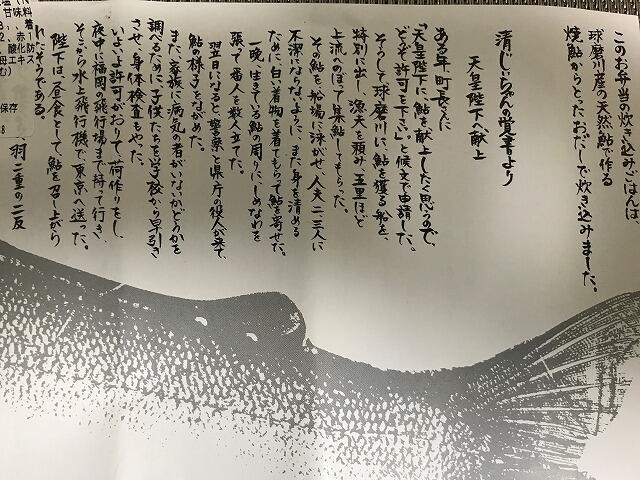 このお弁当の炊き込みごはんは、
球磨川産の天然鮎で作る
焼鮎からとったおだしで炊き込みました。
清じいちゃんの覚書より
天皇陛下へ献上
ある年 町長さんに
「天皇陛下に、鮎を献上したく思うので、
どうぞ許可を下さい。」と候文で申請した。
そうして球磨川に、鮎を獲る船を、
特別に出し、漁夫を頼み 五里ほど
上流へのぼって 集鮎してもらった。
その鮎を船場に泳がせ 人夫二、三人に
不潔にならないように、また身を清める
ために、白い着物を着てもらって鮎を寄せた。
一晩、生きている鮎の周りに、しめなわを
張って番人を数人立てた。
翌日になると、警察と県庁の役人が来て、
鮎の様子をながめた。
また、家族に病気の者がいないかどうかを
調べるために子供たちを学校から早引き
させ、身体検査もやった。
いよいよ許可がおりて、荷作りをし、
夜中に福岡の飛行場まで持って行き、
そこから水上飛行機で東京へ送った。
陛下は、昼食として、鮎を召し上がら
れたそうである。
羽二重の二反
保存